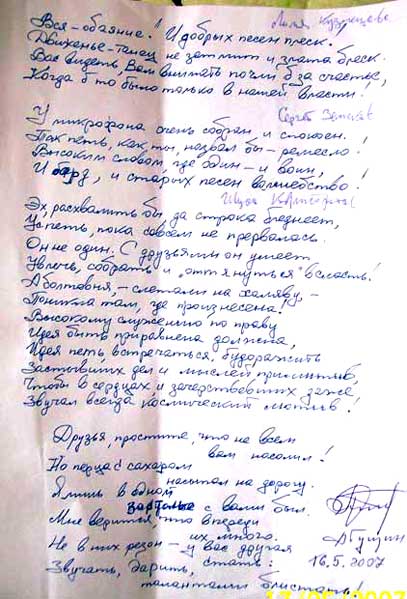 Вся - обаяние! И добрых песен плеск.
Лиля Кузнецова
Движенье-танец не затмит и злата блеск.
Вас видеть, Вам внимать почли б за счастье,
Когда б то было только в нашей власти!
Сергей
У микрофона очень собран и спокоен.
Так петь, как ты, назвал бы - ремесло!
Высоким словом, где один - и воин,
И бард, и старых песен волшебство!
Эх, расхвалить бы, да строка бледнеет,
Успеть, пока совсем не прервалась.
Он не один. С друзьями он умеет
Увлечь, собрать и "оттянуться" всласть!
А болтовня, - слетали на халяву, -
Поникла там, где произнесена!
Высокому служению по праву
Идея быть приравнена должна,
Идея петь, встречаться, будоражить
Застывших дел и мыслей
Чтобы в сердцах и зачерствевших даже
Звучал всегда космический мотив!
Друзья, простите, что не всем
вам насолил!
Но перца с сахаром
насыпал на дорогу.
Я лишь в одной
застолье с вами был.
Мне верится, что впереди
их много.
Не в них резон - у вас другая
Звучать, дарить, стать:
16.5.2007
талантами блистать!